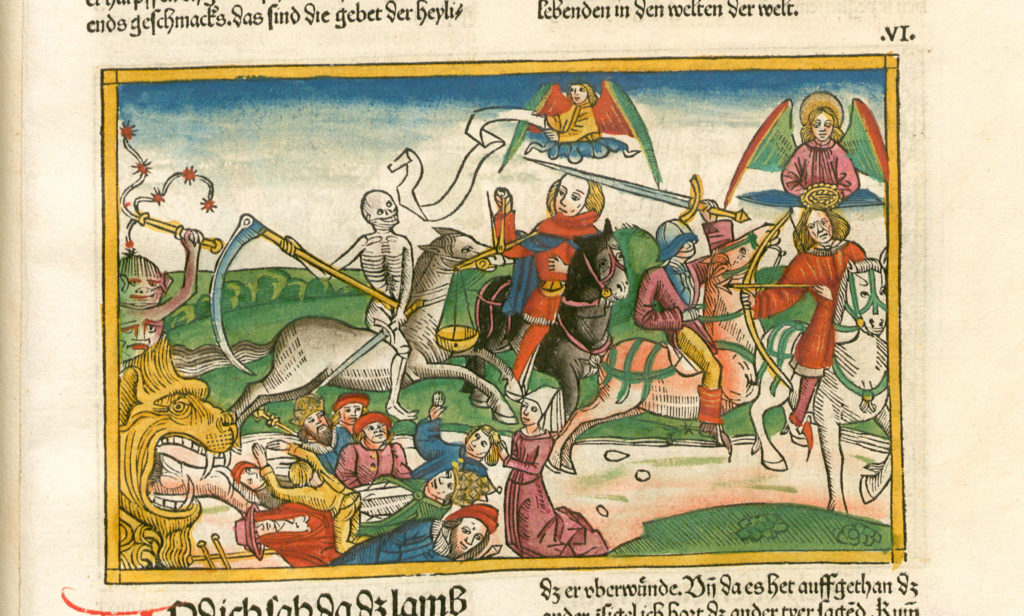 ends geschmacks.das sind die gebet der heyli⸗
lebenden in den welten der welt.
.VI.
ich sah da dz lamb
dz er vberwünde. Vñ da es het auffgethan dz
ander ich hort dz ander tyer Kum